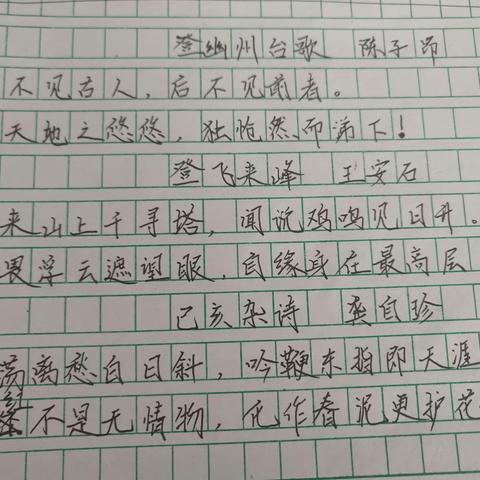 登幽州台歌 陈子昂
不见古人，后不见前者。
天地之悠悠，独怆然而涕下！
登飞来峰 王安石
来山上千寻塔，闻说鸡鸣见日升。
畏浮云遮望眼，自缘身在最高层
己亥杂诗 龚自珍
荡离愁白日斜，吟鞭东指即天涯
不是无情物，化作春泥更护花